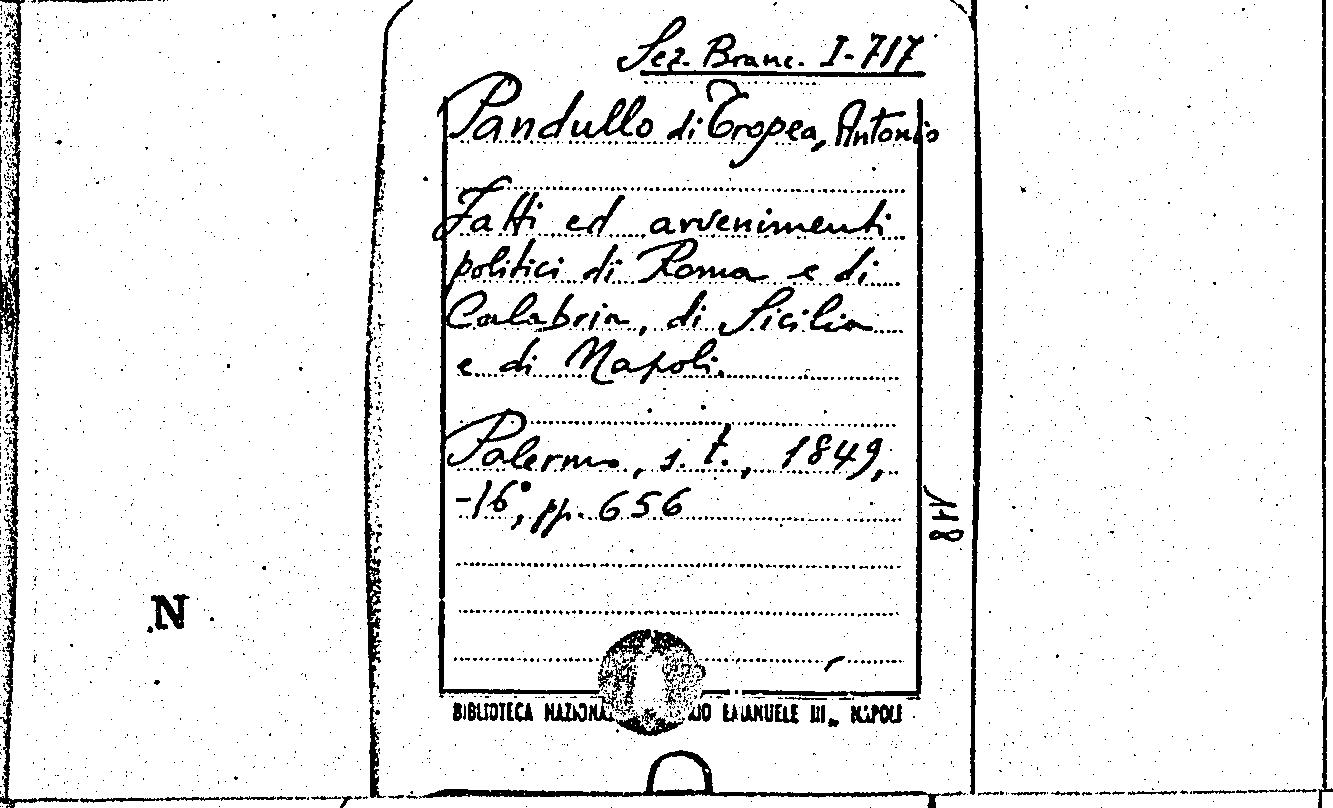 Sez. Branc. I-717
Pandullo di Tropea, Antonio
Fatti ed avvenimenti
politici di Roma e di
Calabria, di Sicilia
e di Napoli.
Palermo, s. t., 1849,
-16°, pp. 656
N
BIBLIOTECA NAZIONA IO EMANUELE III - NAPOLI